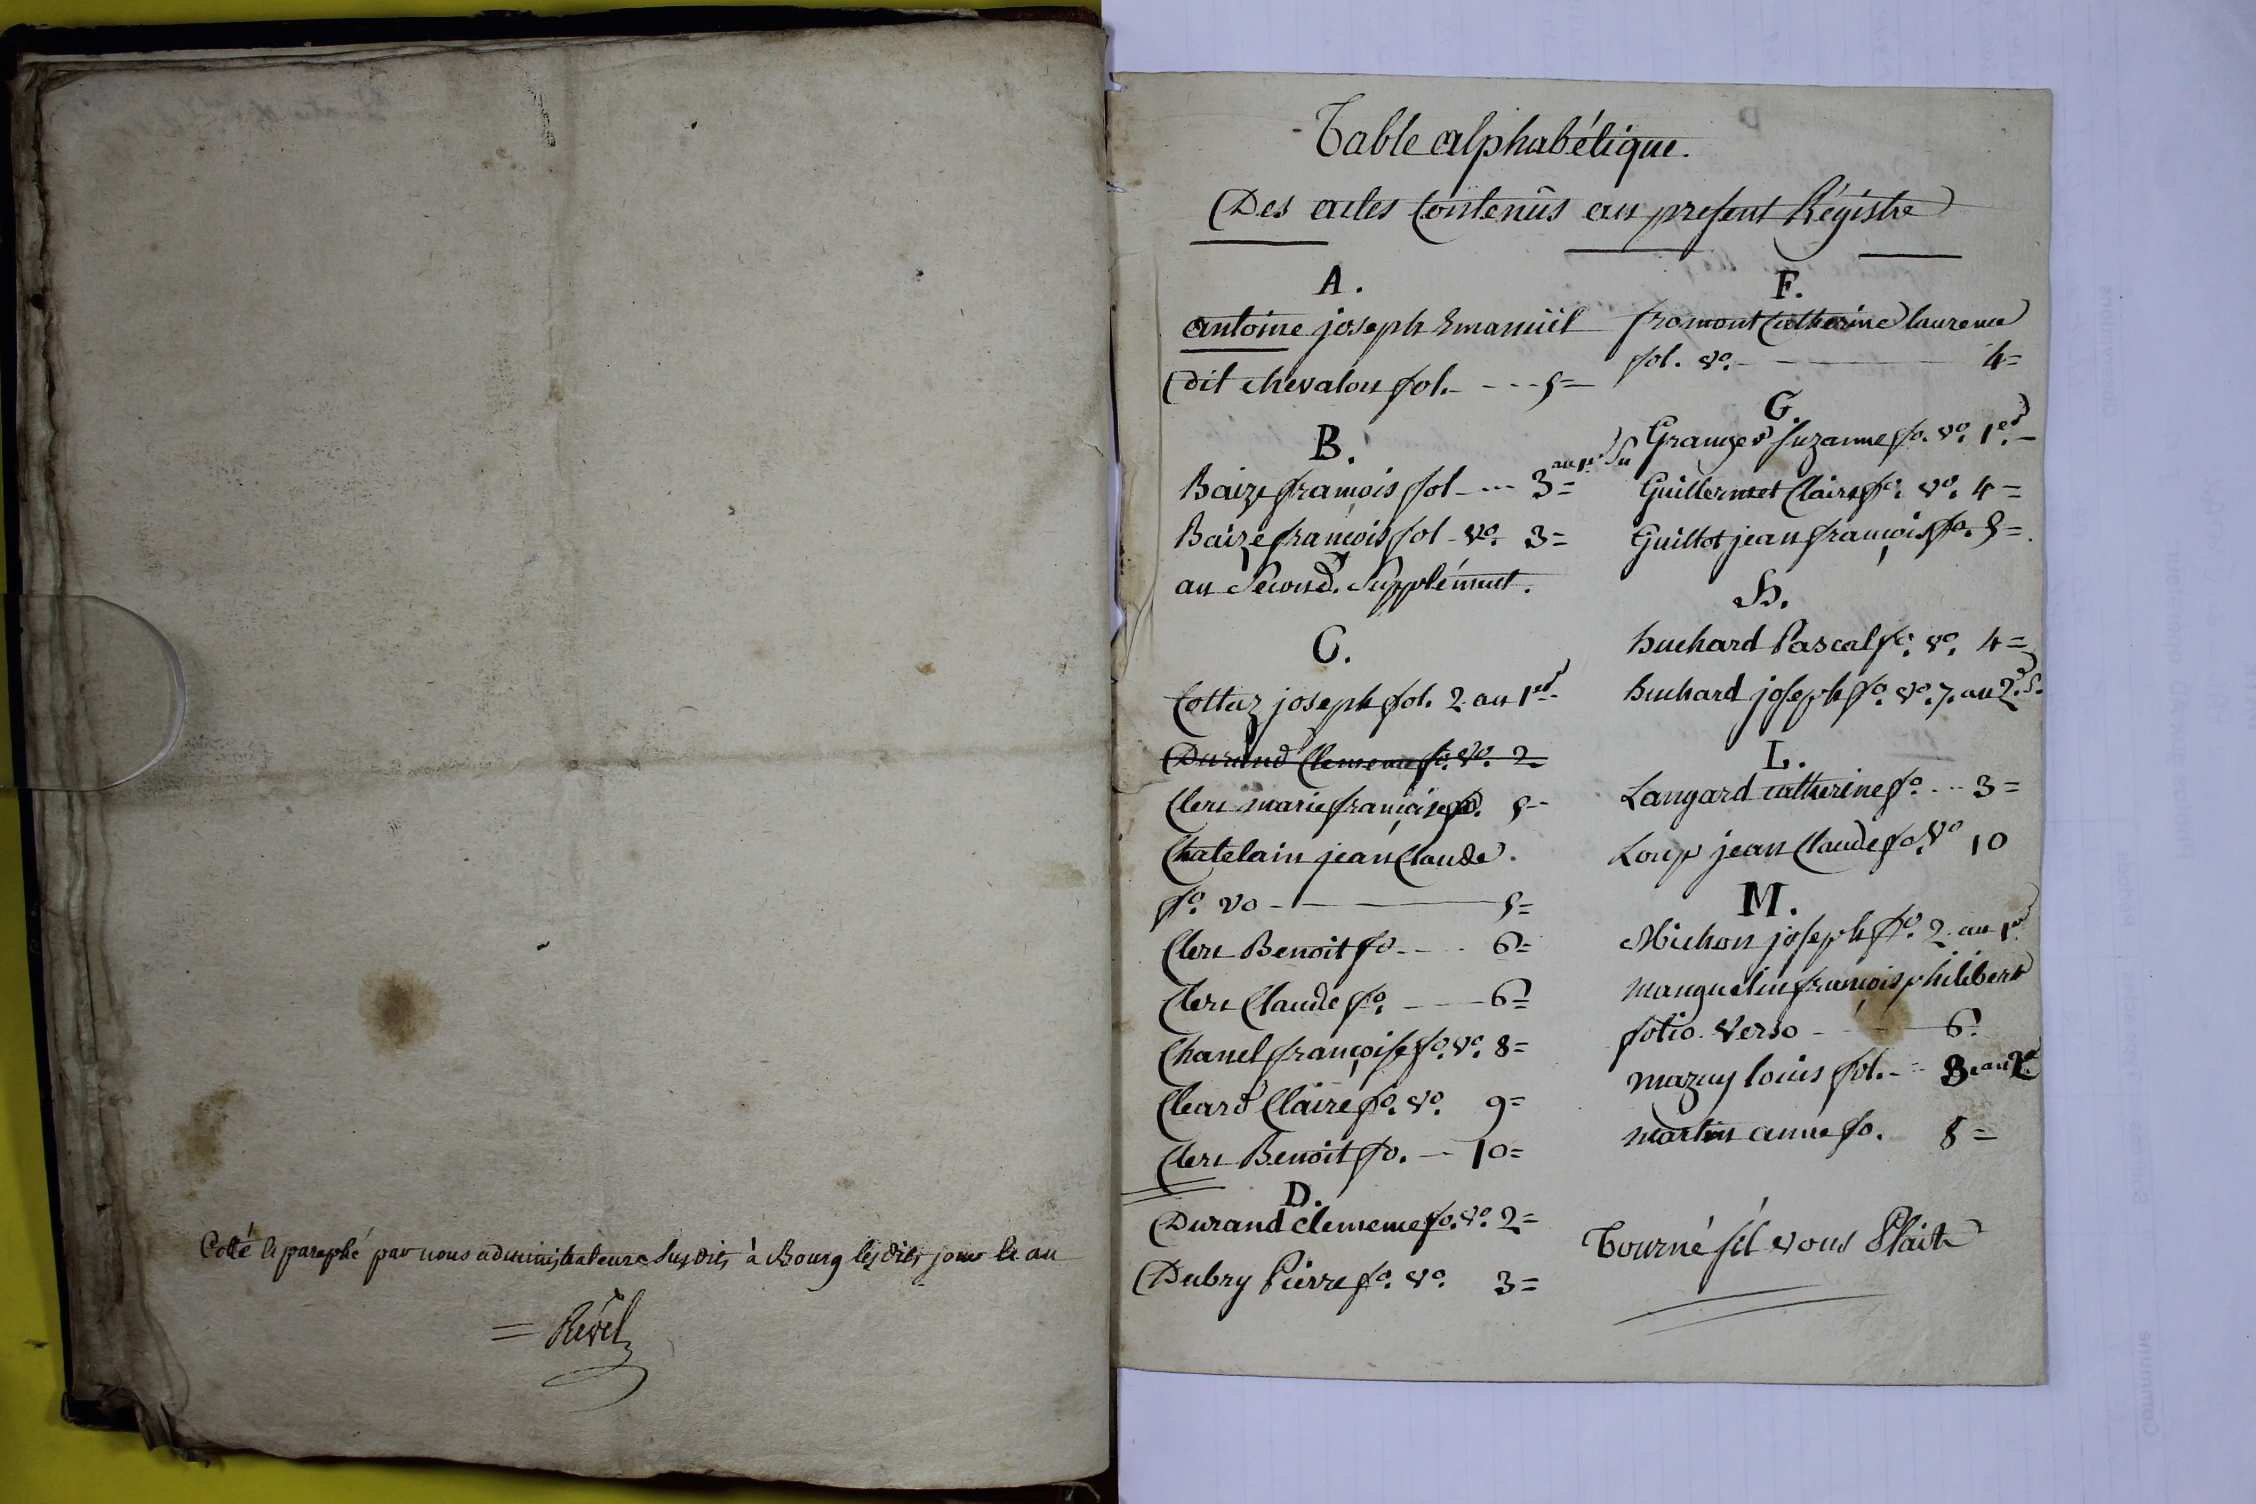 Cotté et paraphé par nous administrateurs susdits à Bourg lesdits jour et an
= Révél
Table alphabétique.
Des actes Contenûs au present Régistre
A.
antoine joseph Emanüel
dit chevalon fol. - - - - 5=
B.
Baize françois fol - - - - 3= au 1er Su
Baize françois fol - vo. 3=
au Second. Supplément.
C.
Cottaz joseph fol. 2. au 1er
Durand Clemence fo. vo. 2-
Clerc marie françoise fo. 5--
Chatelain jean Claude.
fo. vo - - 5=
Clerc Benoit fo - - - 6=
Clerc Claude fo. - - 6=
Chanel françoise fo. vo. 8=
Cleard Claire fo. vo. 9=
Clerc Benoit fo. - 10=
D.
Durand Clemence fo. vo. 2=
Dubry Pierre fo. vo. 3=
F.
fromont Catherine laurence
fol. vo. - - 4=
G.
Granger Suzanne fo. vo. 1er. -
Guillermet Claire fo. vo. 4=
Guillot jean françois fo. 5=.
H.
huchard Pascal fo. vo. 4=
huchard joseph fo. vo. 7. au 2d. S.
L.
Langard catherine fo. - - - 3=
Loup jean Claude fo. vo 10
M.
Michon joseph fo. 2. au 1er
manguelin françois philibert
folio. verso - - 6.
mazuy louis fol. - - 8 au 2e
martin anne fo. 8=
Tourné s'il vous Plait